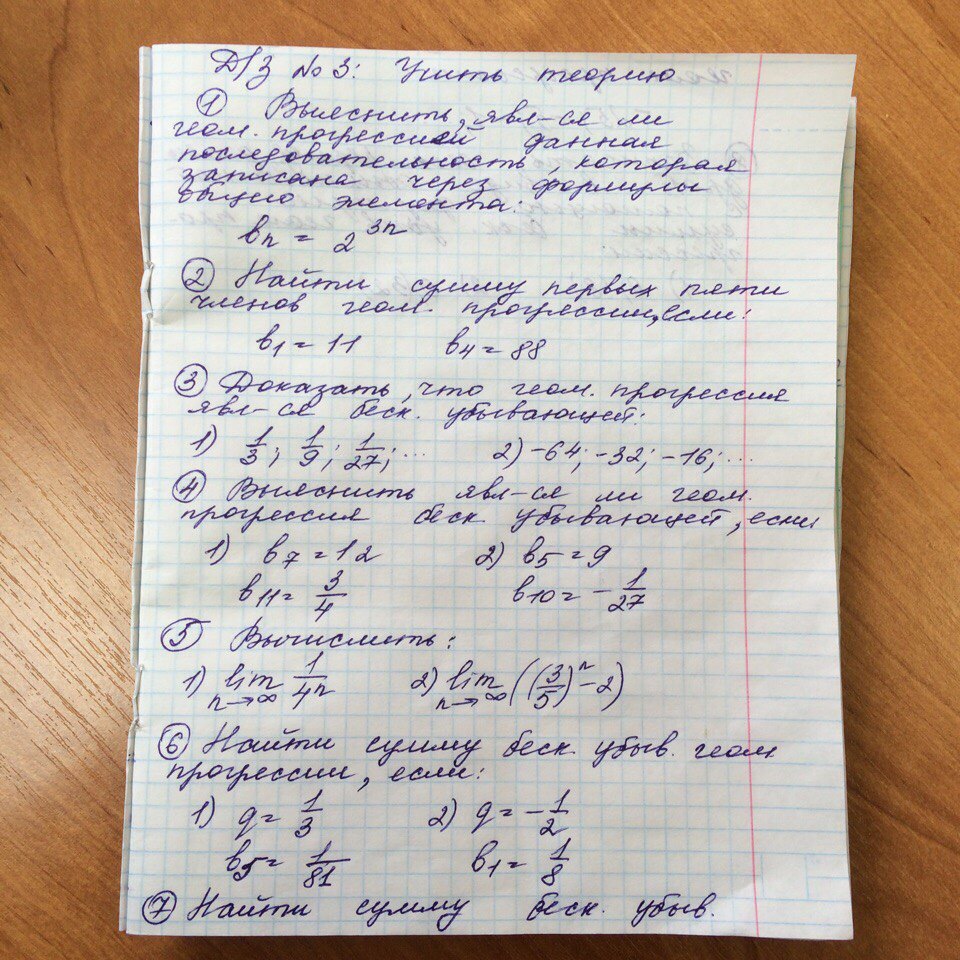 Д/З № 3: Учить теорию
① Выяснить, явл-ся ли
геом. прогрессией данная
последовательность, которая
записана через формулы
общего элемента:
bn = 2^3n
② Найти сумму первых пяти
членов геом. прогрессии, если:
b1 = 11 b4 = 88
③ Доказать, что геом. прогрессия
явл-ся беск. убывающей:
1) 1/3; 1/9; 1/27; ... 2) -64; -32; -16; ...
④ Выяснить явл-ся ли геом.
прогрессия беск. убывающей, если:
1) b7 = 12 2) b5 = 9
b11 = 3/4 b10 = -1/27
⑤ Вычислить:
1) lim n→∞ 1/4^n 2) lim n→∞ ((3/5)^n - 2)
⑥ Найти сумму беск. убыв. геом.
прогрессии, если:
1) q = 1/3 2) q = -1/2
b5 = 1/81 b1 = 1/8
⑦ Найти сумму беск. убыв.